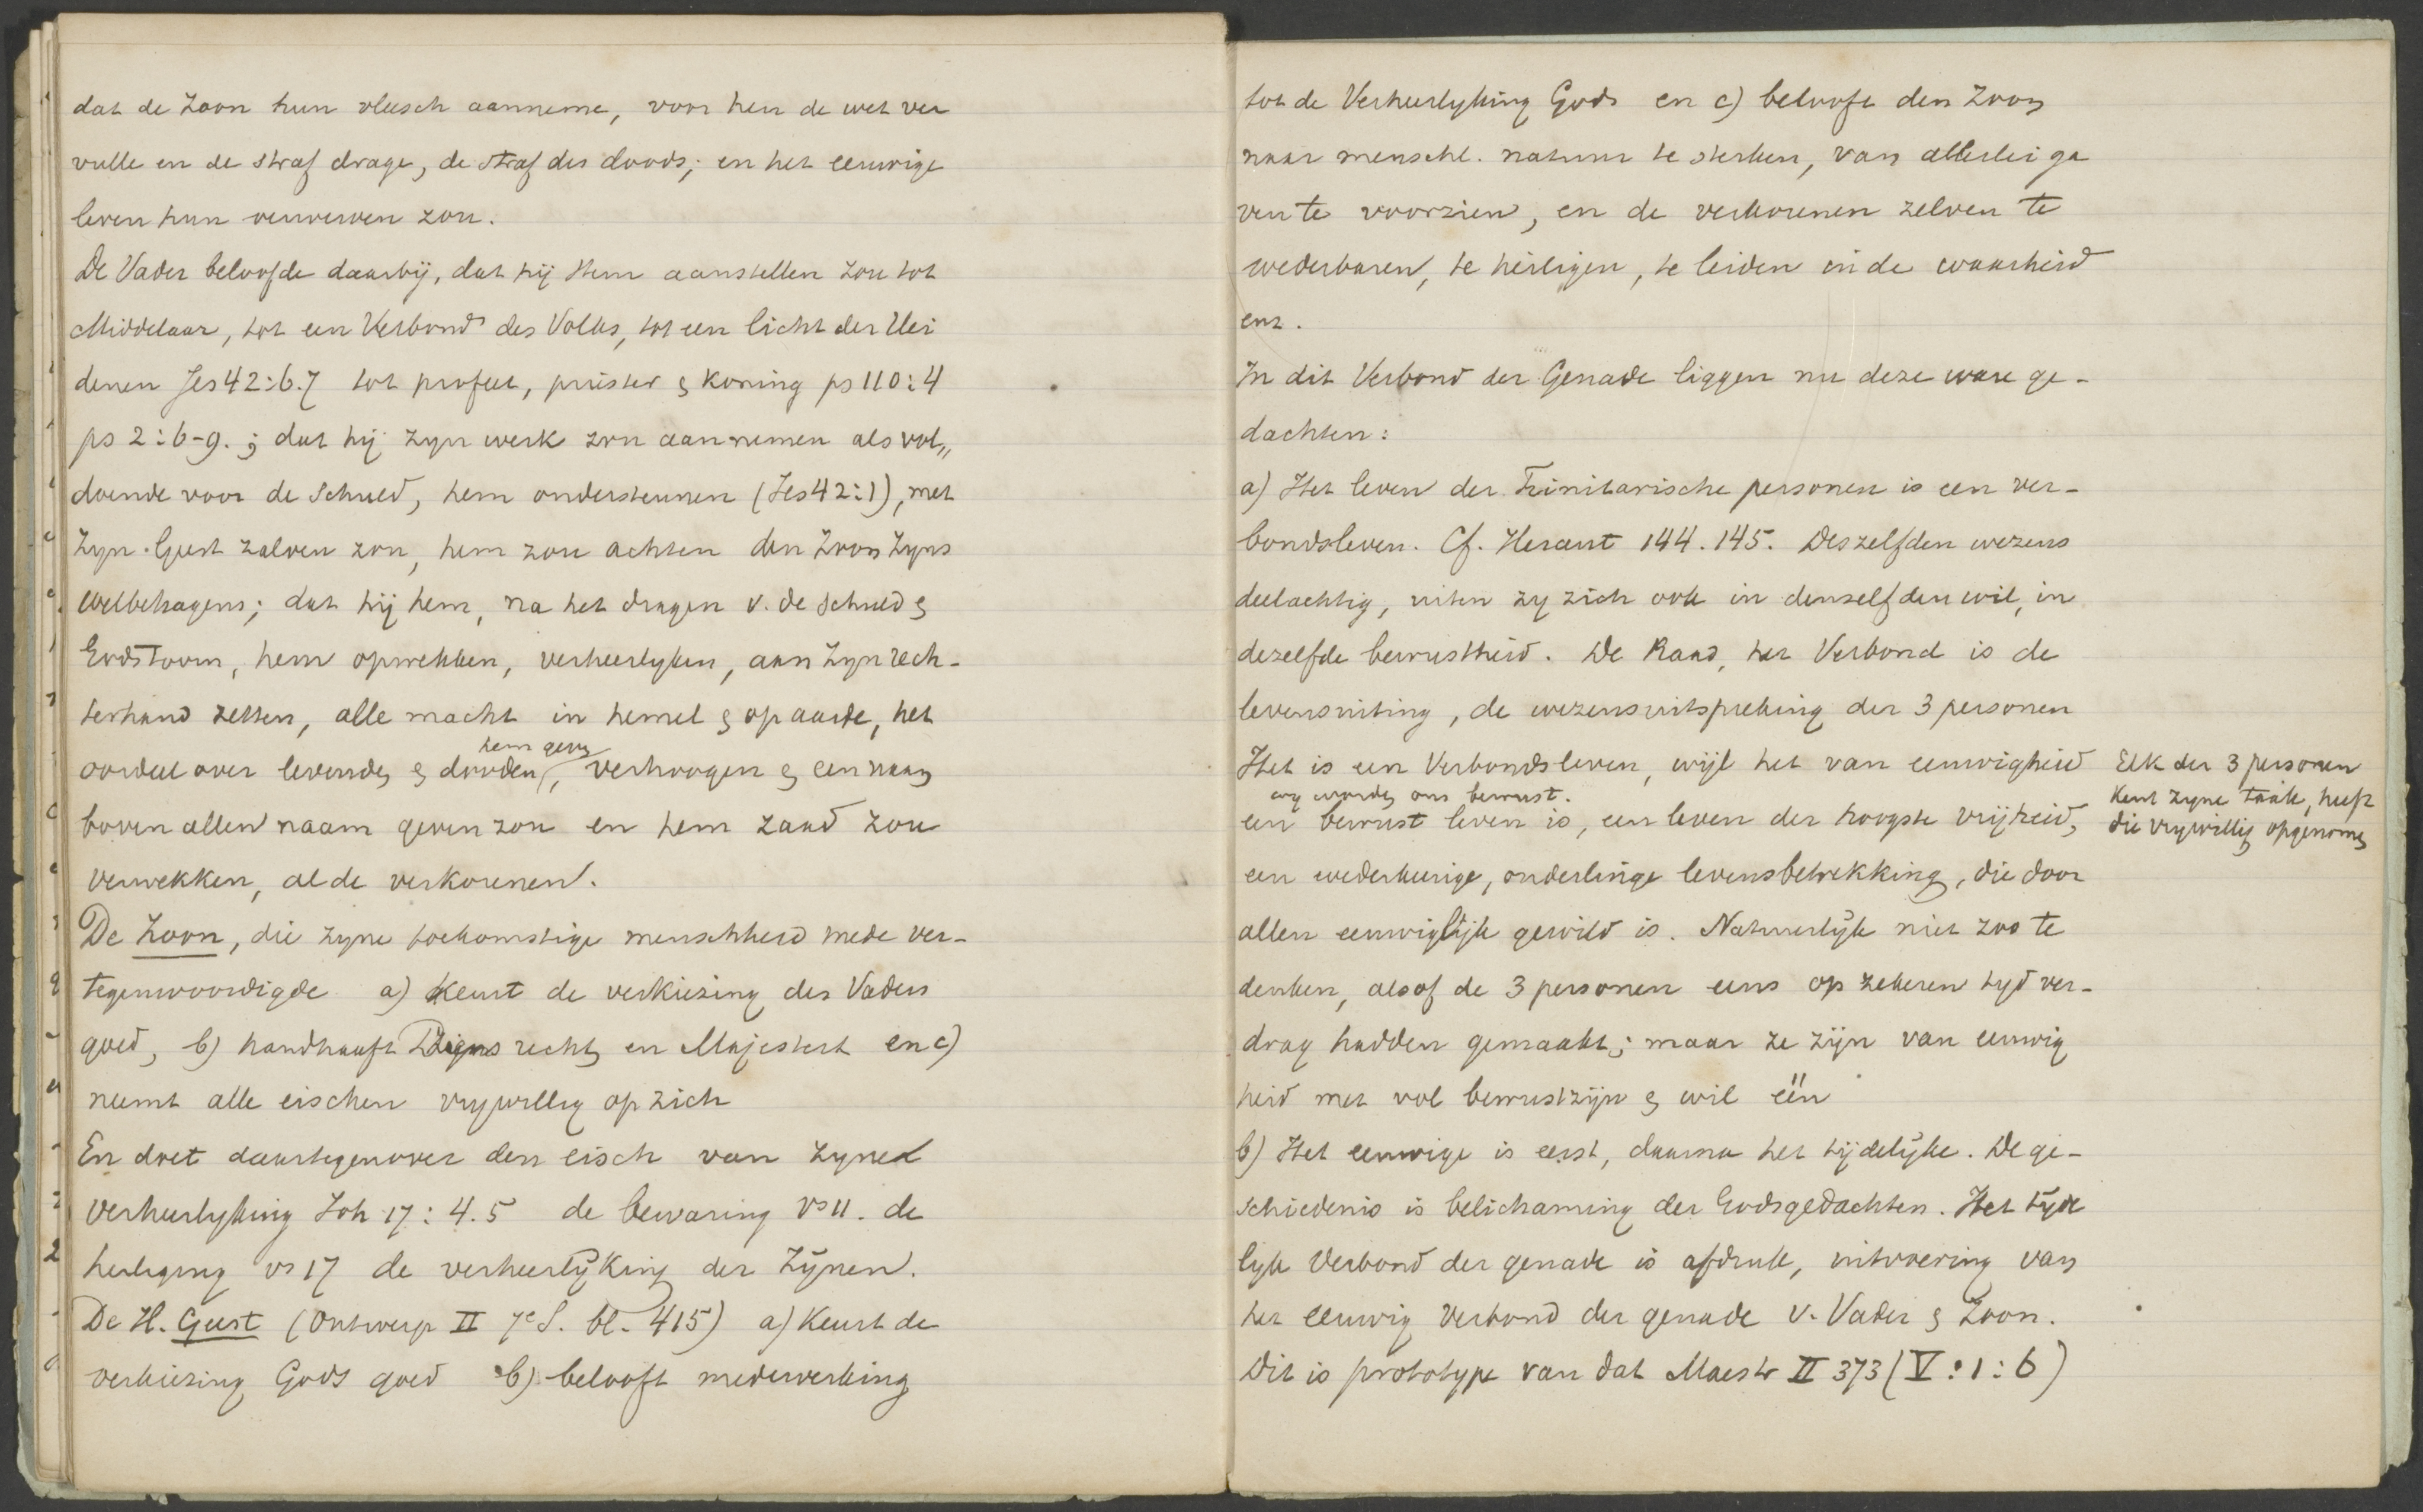 dat de Zoon hun vleesch aanneme, voor hen de wet ver
vulle en de straf drage, de straf des doods; en het eeuwige
leven hun verwerven zou.
De Vader beloofde daarbij, dat hij Hem aanstellen zou tot
Middelaar, tot een Verbond des Volks, tot een licht der Hei
denen Jes 42:6.7 tot profeet, priester & koning ps 110:4
ps 2:6-9.; dat hij zyn werk zou aannemen als vol„
doende voor de schuld, hem ondersteunen (Jes 42:1), met
Zyn Geest zalven zou, hem zou achten den Zoon Zyns
welbehagens; dat hij hem, na het dragen v. de schuld &
Godstoorn, hem opwekken, verheerlyken, aan Zyn rech-
terhand zetten, alle macht in hemel & op aarde, het
hem geven
oordeel over levenden & dooden, verhoogen & een naam
boven allen naam geven zou en hem zaad zou
verwekken, al de verkorenen.
De Zoon, die zyne toekomstige menschheid mede ver-
tegenwoordigde a) Keurt de verkiezing des Vaders
goed, b) handhaaft Diens recht en Majesteit en c)
neemt alle eischen vrywillig op zich
En doet daartegenover den eisch van zyne
verheerlyking Joh 17:4.5 de bewaring vs 11. de
heiliging vs 17 de verheerlyking der Zynen.
De H. Geest (Ontwerp II 7e S. bl. 415) a) Keurt de
verkiezing Gods goed b) belooft medewerking
tot de Verheerlyking Gods en c) belooft den Zoon
naar menschl. natuur te sterken, van allerlei ga
ven te voorzien, en de verkorenen zelven te
wederbaren, te heiligen, te leiden in de waarheid
enz.
In dit Verbond der Genade liggen nu deze ware ge-
dachten:
a) Het leven der Trinitarische personen is een ver-
bondsleven. Cf. Heraut 144.145. Deszelfden wezens
deelachtig, uiten zy zich ook in denzelfden wil, in
dezelfde bewustheid. De Raad, het Verbond is de
levensuiting, de wezensuitspreking der 3 personen
Het is een Verbondsleven, wijl het van eeuwigheid
wy worden ons bewust.
een bewust leven is, een leven der hoogste vrijheid,
Elk der 3 personen
Kent zyne taak, heeft
die vrywillig opgenomen
een wederkeerige, onderlinge levensbetrekking, die door
allen eeuwiglijk gewild is. Natuurlijk niet zoo te
denken, alsof de 3 personen eens op zekeren tyd ver-
drag hadden gemaakt; maar ze zijn van eeuwig
heid met vol bewustzijn & wil één
b) Het eeuwige is eerst, daarna het tijdelijke. De ge-
schiedenis is belichaming der Godsgedachten. Het tyde
lyk Verbond der genade is afdruk, uitvoering van
het eeuwig Verbond der genade v. Vader & Zoon.
Dit is prototype van dat Maestr II 373 (V:1:6)